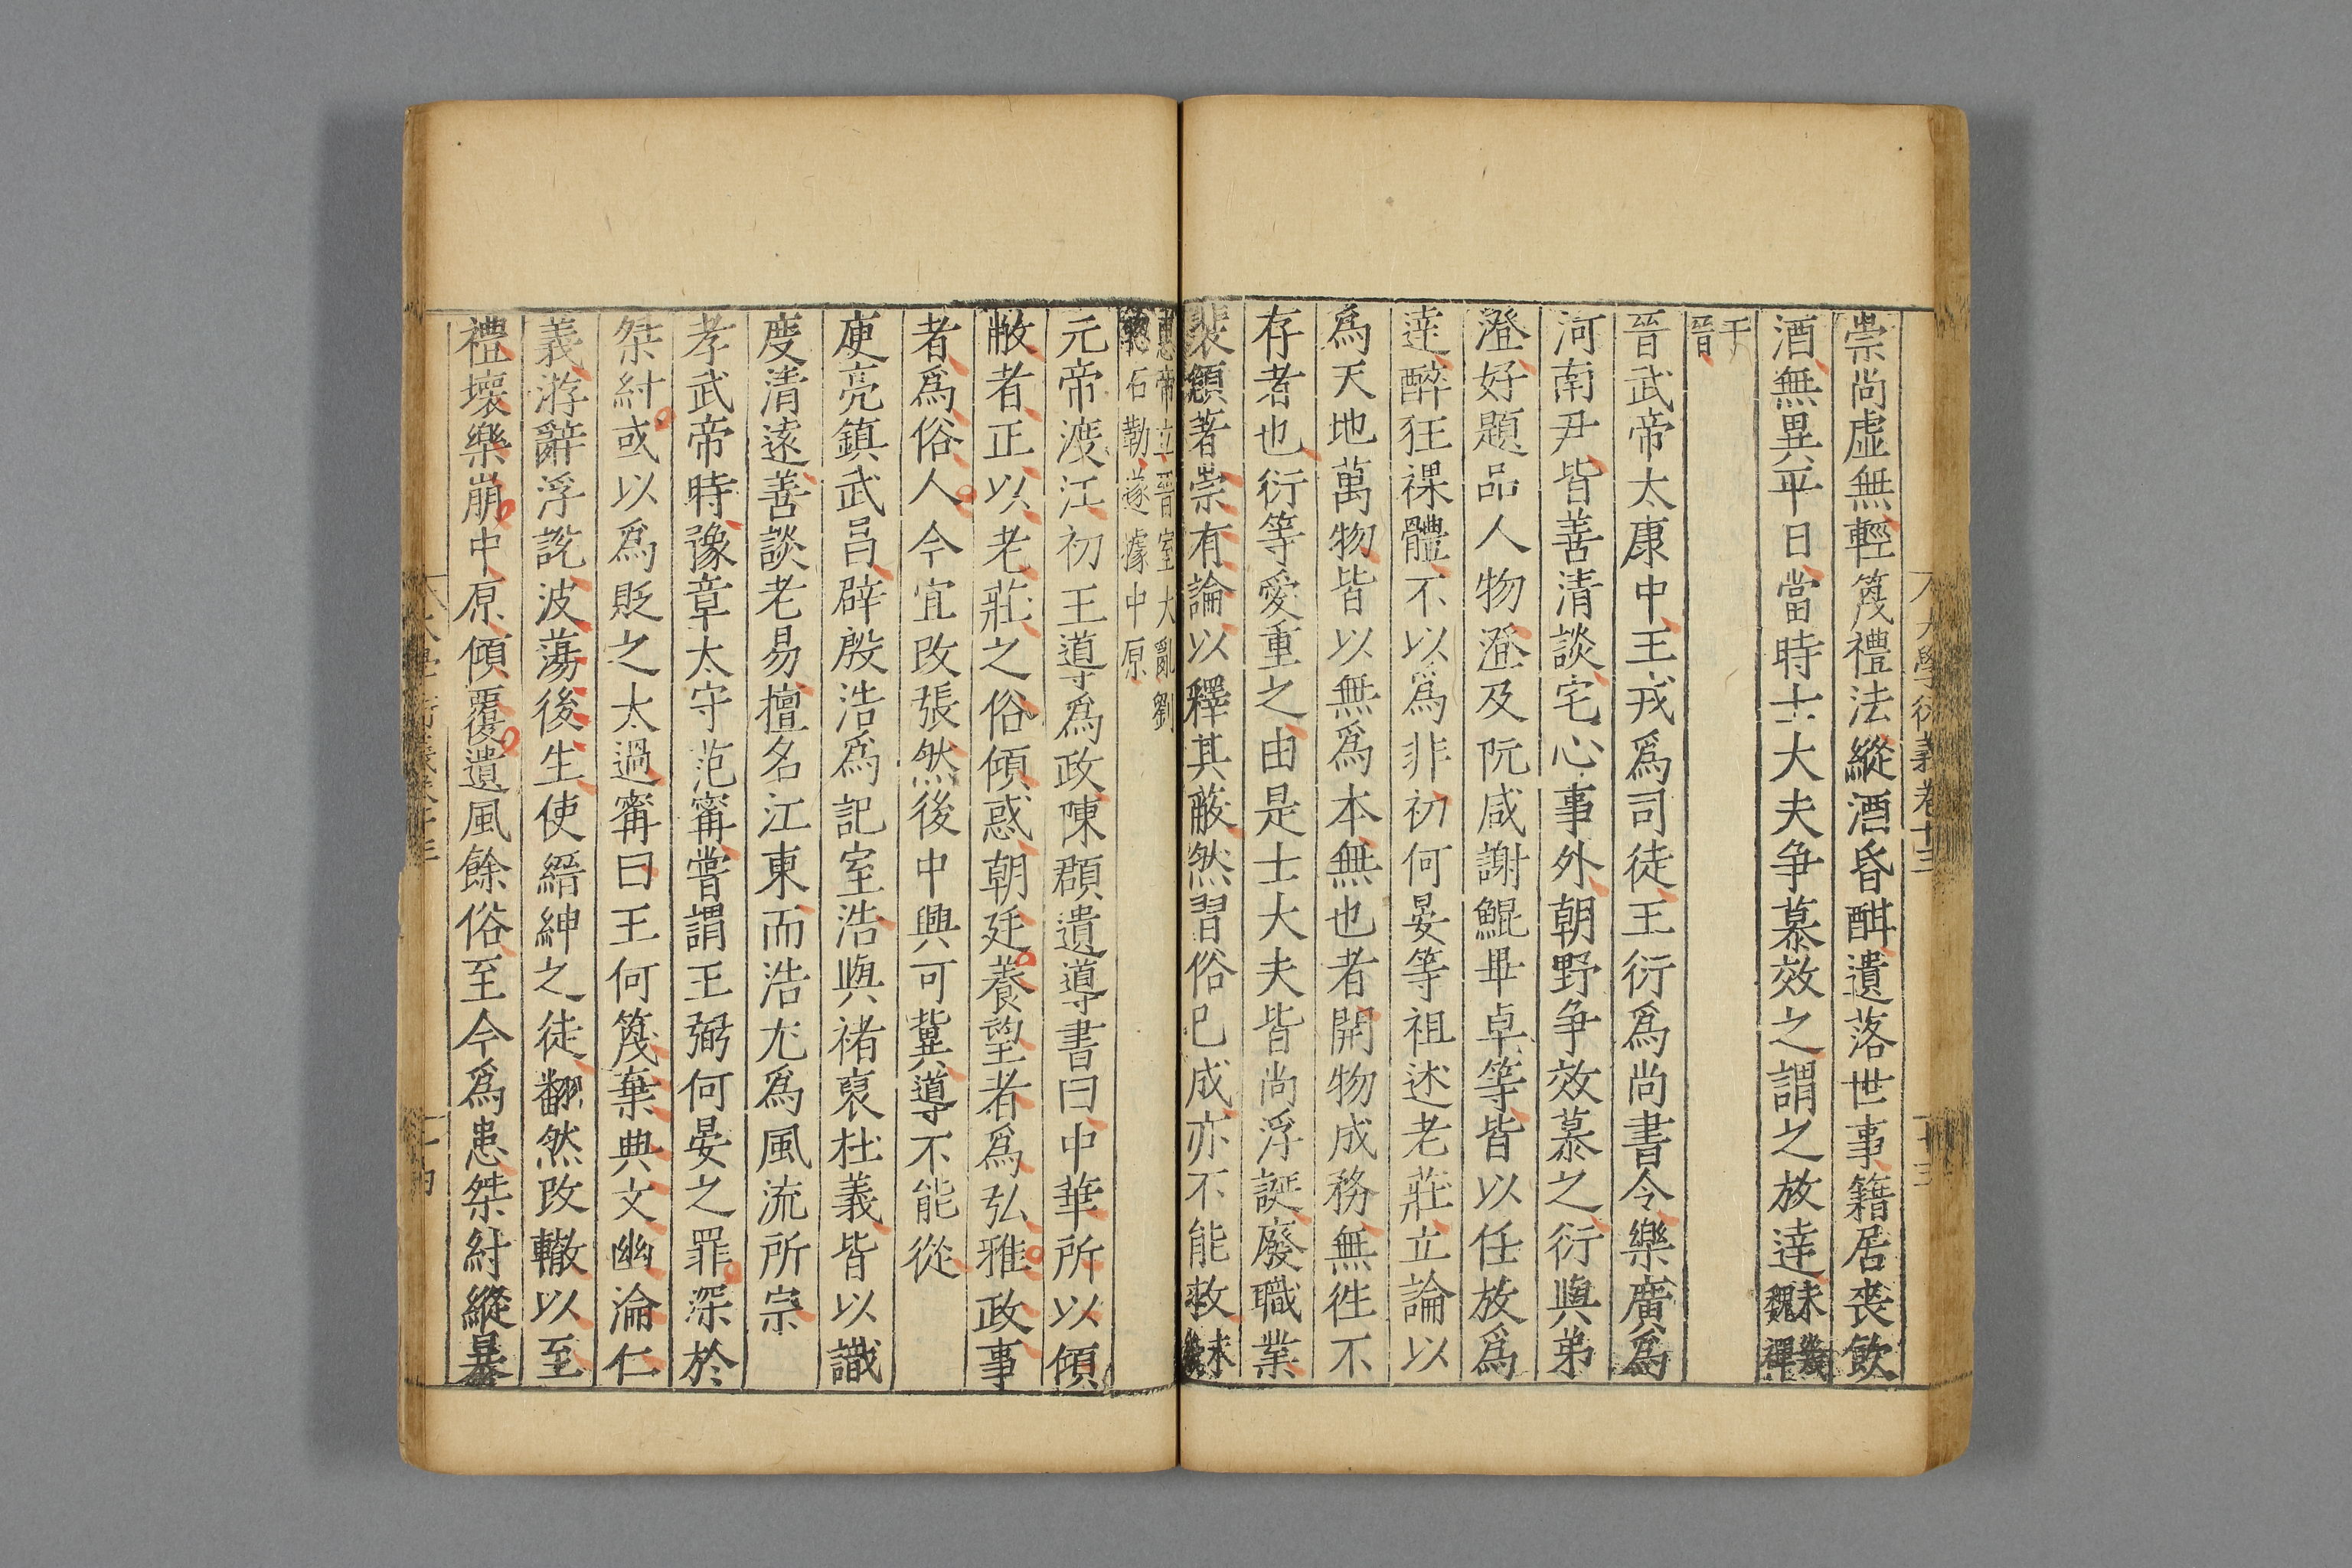 大學衍義卷十三
十三
崇尚虛無輕篾禮法縱酒昏酣遺落世事籍居喪飲
酒無異平日當時士大夫争慕效之謂之放達未幾魏禪
于晉
晉武帝太康中王戎爲司徒王衍爲尚書令樂廣爲
河南尹皆善清談宅心事外朝野争效慕之衍與弟
澄好題品人物澄及阮咸謝鯤畢卓等皆以任放爲
達醉狂裸體不以爲非初何晏等祖述老莊立論以
爲天地萬物皆以無爲本無也者開物成務無徃不
存者也衍等愛重之由是士大夫皆尚浮誕廢職業
裴頠著崇有論以釋其蔽然習俗已成亦不能救未幾
惠帝立晉室大亂劉
聰石勒遂據中原
元帝渡江初王導爲政陳頵遺導書曰中華所以傾
敝者正以老莊之俗傾惑朝廷養望者爲弘雅政事
者爲俗人今宜改張然後中興可冀導不能從
庾亮鎮武昌辟殷浩爲記室浩與禇裒杜義皆以識
度清遠善談老易擅名江東而浩尤爲風流所宗
孝武帝時豫章太守范甯嘗謂王弼何晏之罪深於
桀紂或以爲貶之太過甯曰王何篾棄典文幽淪仁
義游辭浮說波蕩後生使縉紳之徒翻然改轍以至
禮壞樂崩中原傾覆遺風餘俗至今爲患桀紂縱暴
大學衍義
十四